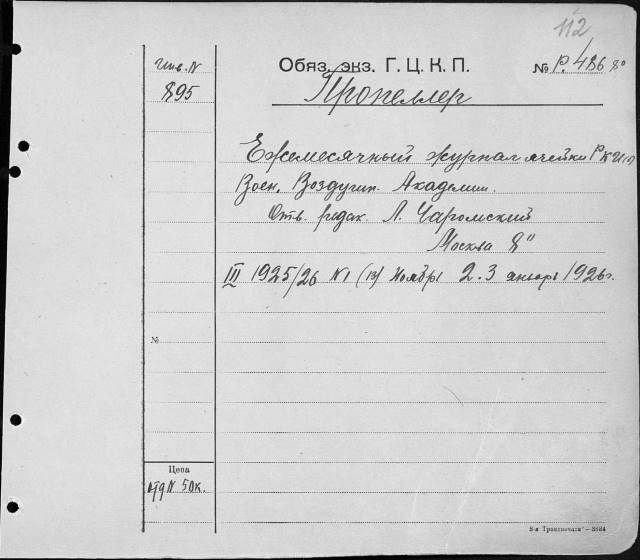 112
Инв. N
895
Обяз. экз. Г. Ц. К. П.
№ Р. 486 8°
Пропеллер
Ежемесячный журнал ячейки
Воен. Воздушн. Академии.
Отв. редак. Л. Чаромский
Москва 8"
III 1925/26 N1 (13) Ноябрь 2.3 январь 1926 г.
№
Цена
отд N 50к.
8-я Транспечати — 3884